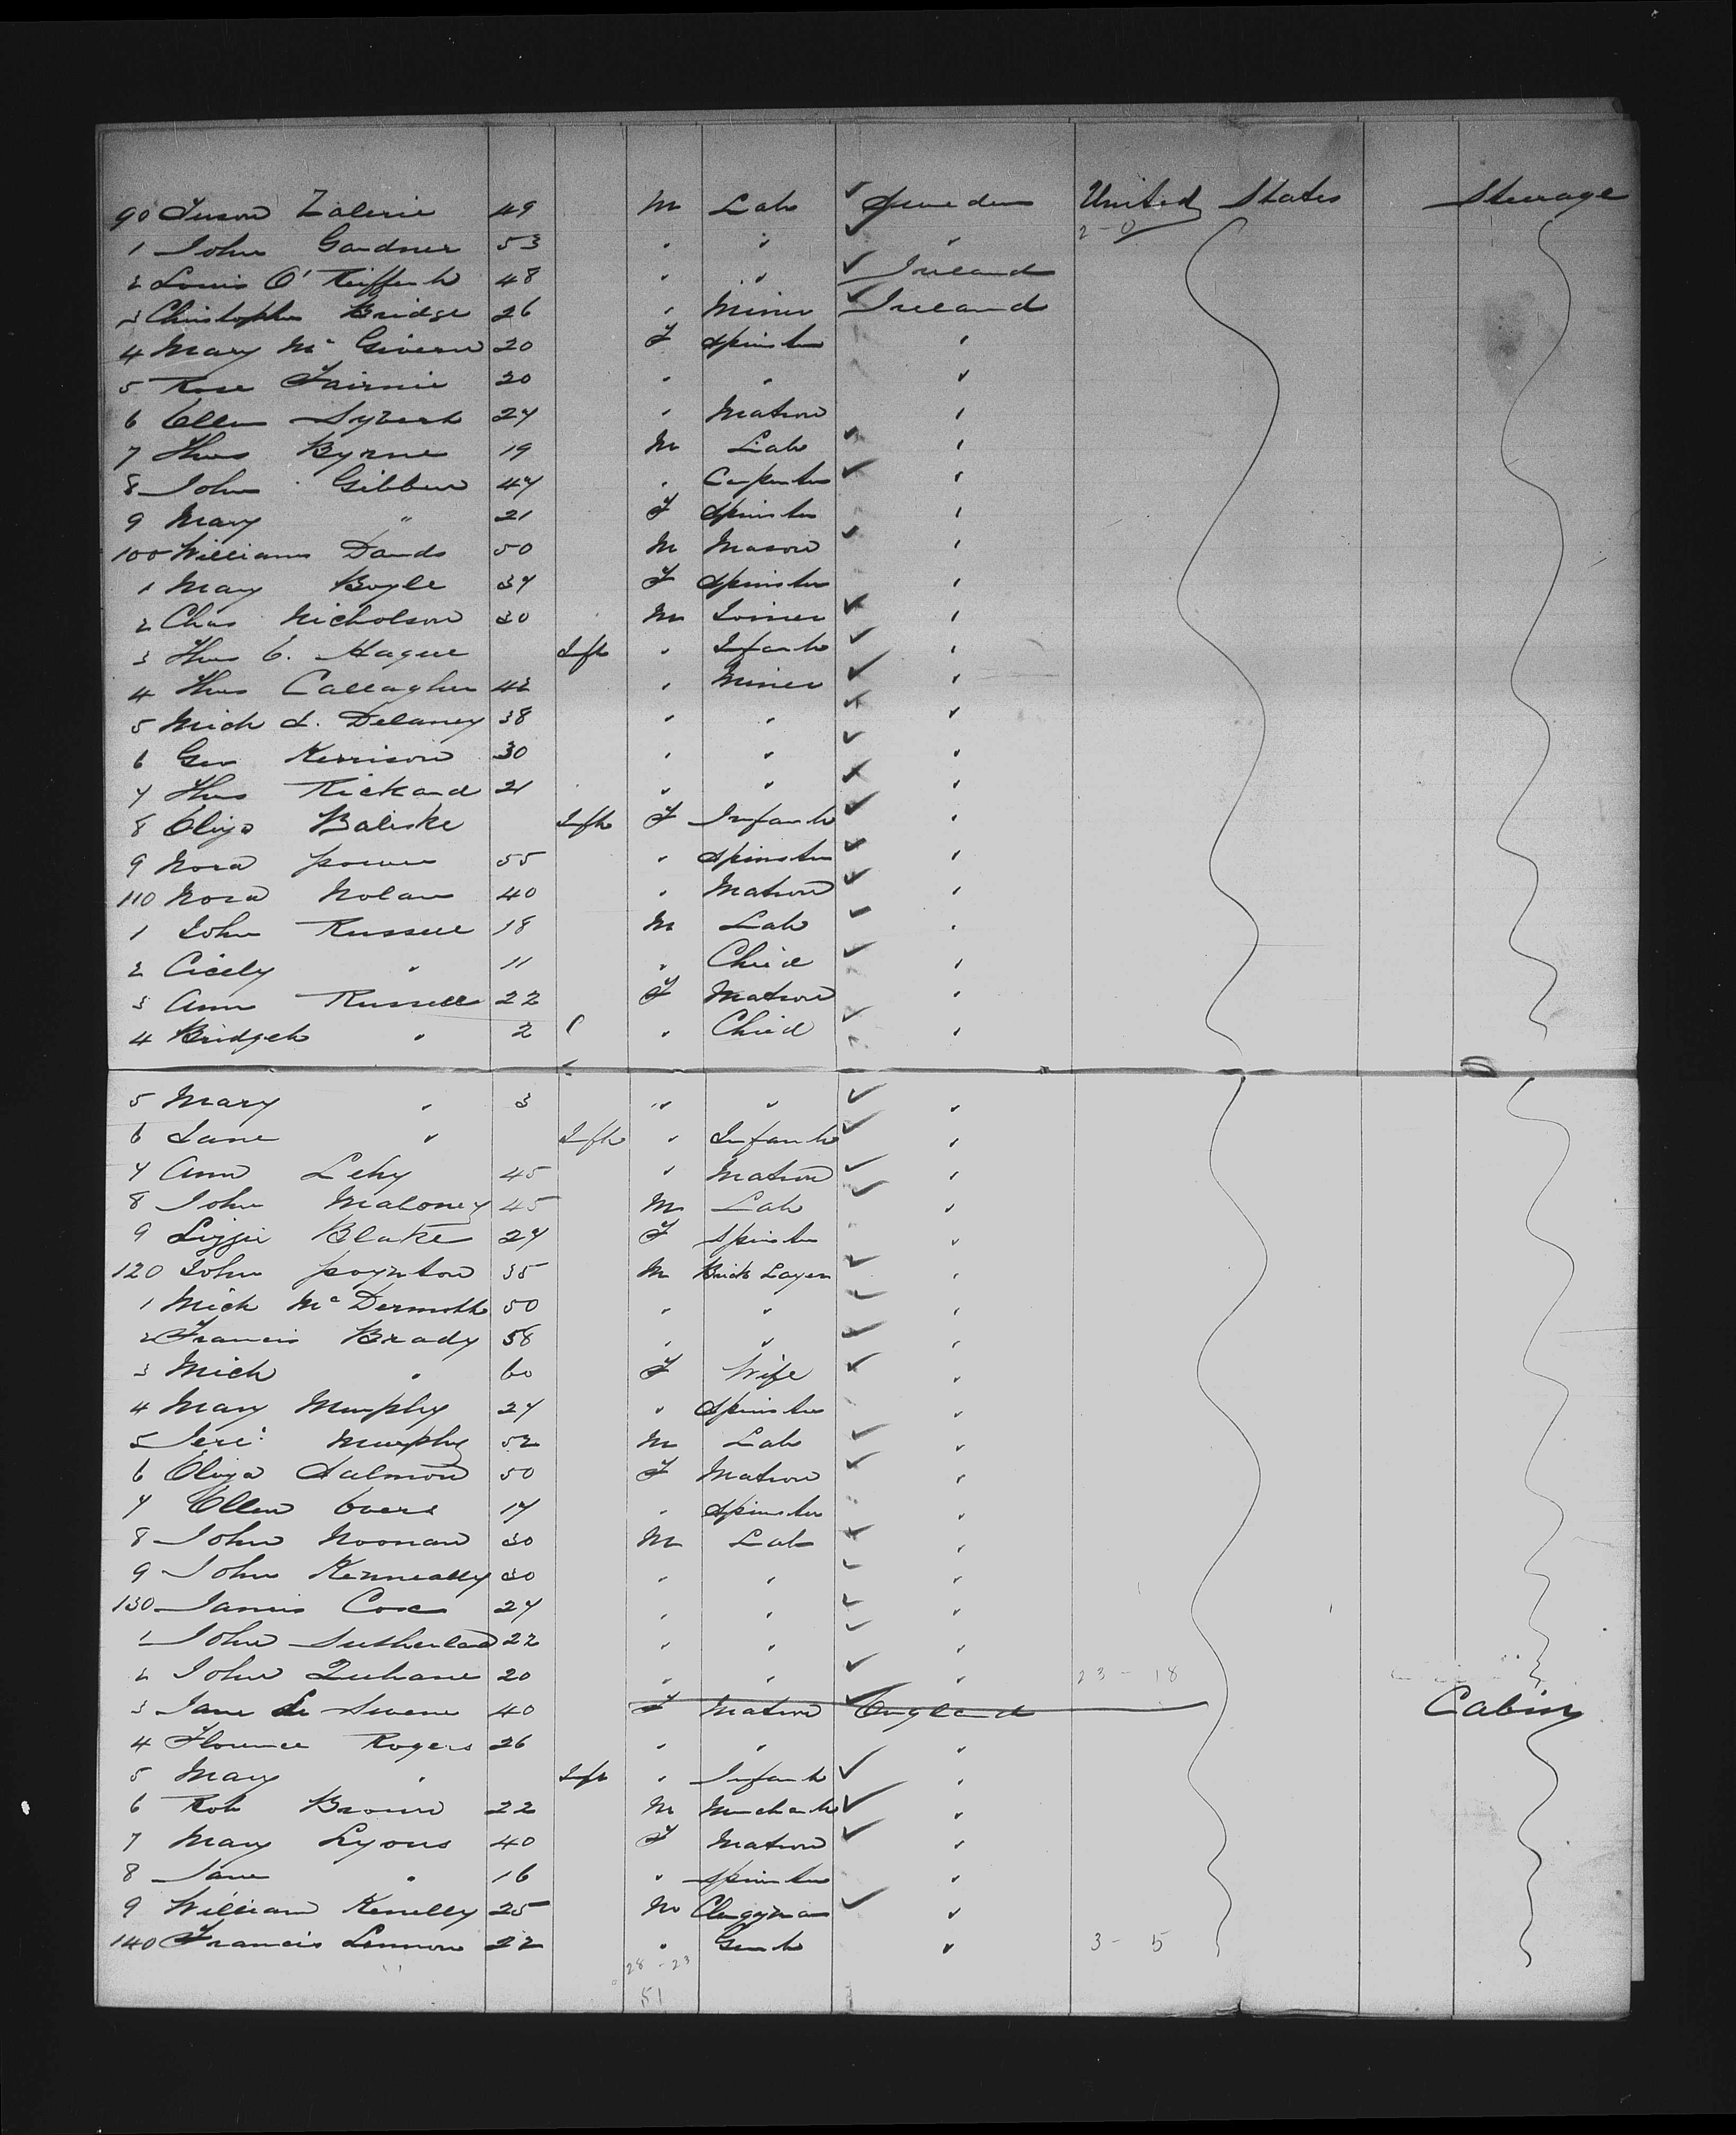 90 Zalerie 49 M Lab Sweden United States Steerage
1 John Gardner 53 " " " 2-0
2 Louis O' 48 " " Ireland
3 Christopher Bridge 26 " Miner Ireland
4 Mary Mc Givern 20 F Spinster "
5 Rose Fairnie 20 " " "
6 Ellen 24 " Matron "
7 Thos Byrne 19 M Lab "
8 John Gibbon 47 " Carpenter "
9 Mary " 21 F Spinster "
100 William Dands 50 M Mason "
1 Mary Boyle 37 F Spinster "
2 Chas Nicholson 30 M Joiner "
3 Thos C. Hague Inft " Infant "
4 Thos Callagher 42 " Miner "
5 Mich J. Delaney 38 " " "
6 Geo Kerrison 30 " " "
7 Thos Rickard 21 " " "
8 Eliza Baliske Inft F Infant "
9 Nora Power 55 " Spinster "
110 Nora Nolan 40 " Matron "
1 John Russell 18 M Lab "
2 Cicely " 11 " Child "
3 Ann Russell 22 F Matron "
4 Bridget " 2 " Child "
5 Mary " 3 " " "
6 Jane " Inft " Infant "
7 Ann Lehy 45 " Matron "
8 John Maloney 45 M Lab "
9 Lizzie Blake 27 F Spinster "
120 John Poynton 35 M Brick Layer "
1 Mich Mc Dermott 50 " " "
2 Francis Brady 58 " " "
3 Mich " 60 F Wife "
4 Mary Murphy 27 " Spinster "
5 Jere: Murphy 52 M Lab "
6 Eliza Salmon 50 F Matron "
7 Ellen Evers 17 " Spinster "
8 John Noonan 30 M Lab "
9 John Kenneally 30 " " "
130 James Cox 27 " " "
1 John Sutherland 22 " " "
2 John Quhane 20 " " " 23-18
3 Jane Le 40 F Matron England Cabin
4 Florence Rogers 26 " " "
5 Mary " Inft " Infant "
6 Rob Brown 22 M Merchant "
7 Mary Lyons 40 F Matron "
8 Jane " 16 " Spinster "
9 William Kenelly 25 M Clergyman "
140 Francis Lennon 22 " Gent " 3-5
28-23
51